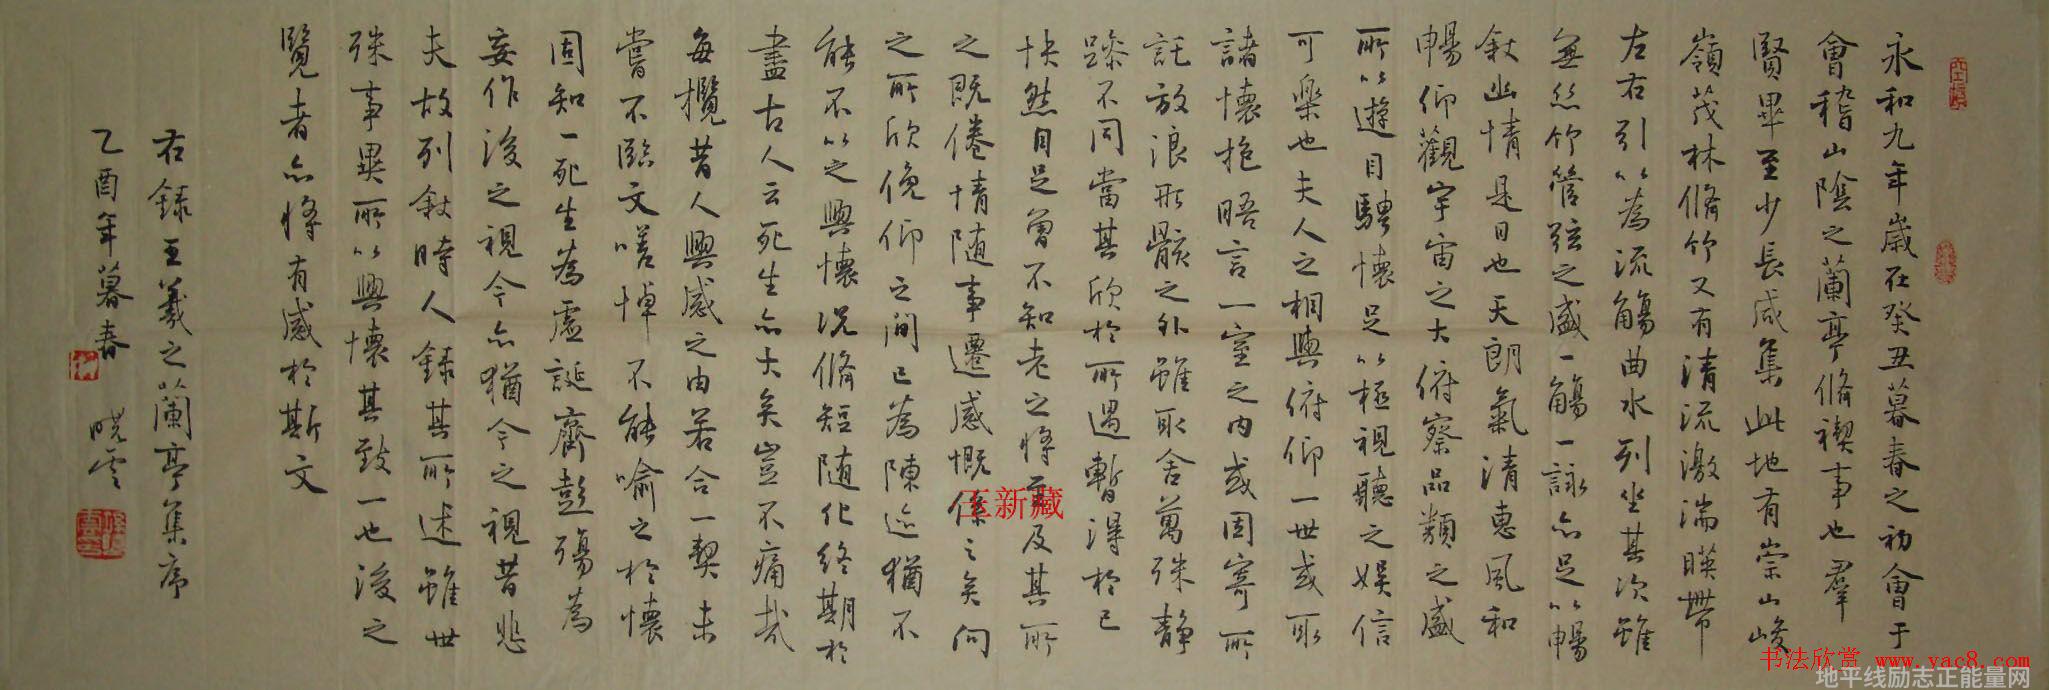 永和九年歲在癸丑暮春之初會于
會稽山陰之蘭亭脩禊事也羣
賢畢至少長咸集此地有崇山峻
嶺茂林脩竹又有清流激湍暎帶
左右引以為流觴曲水列坐其次雖
無絲竹管弦之盛一觴一詠亦足以暢
敘幽情是日也天朗氣清惠風和
暢仰觀宇宙之大俯察品類之盛
所以遊目騁懷足以極視聽之娛信
可樂也夫人之相與俯仰一世或取
諸懷抱晤言一室之內或因寄所
託放浪形骸之外雖取舍萬殊静
躁不同當其欣於所遇暫得於己
快然自足曾不知老之將至及其所
之既倦情随事遷感慨係之矣向
之所欣俛仰之間已為陳迹猶不
能不以之興懷況脩短随化終期於
盡古人云死生亦大矣豈不痛哉
每攬昔人興感之由若合一契未
嘗不臨文嗟悼不能喻之於懷
固知一死生為虛誕齊彭殤為
妄作後之視今亦猶今之視昔悲
夫故列敘時人録其所述雖世
殊事異所以興懷其致一也後之
覽者亦將有感於斯文
右録王羲之蘭亭集序
乙酉年暮春 晓雲
王新藏
书法欣赏 www.yac8.com
地平线励志正能量网